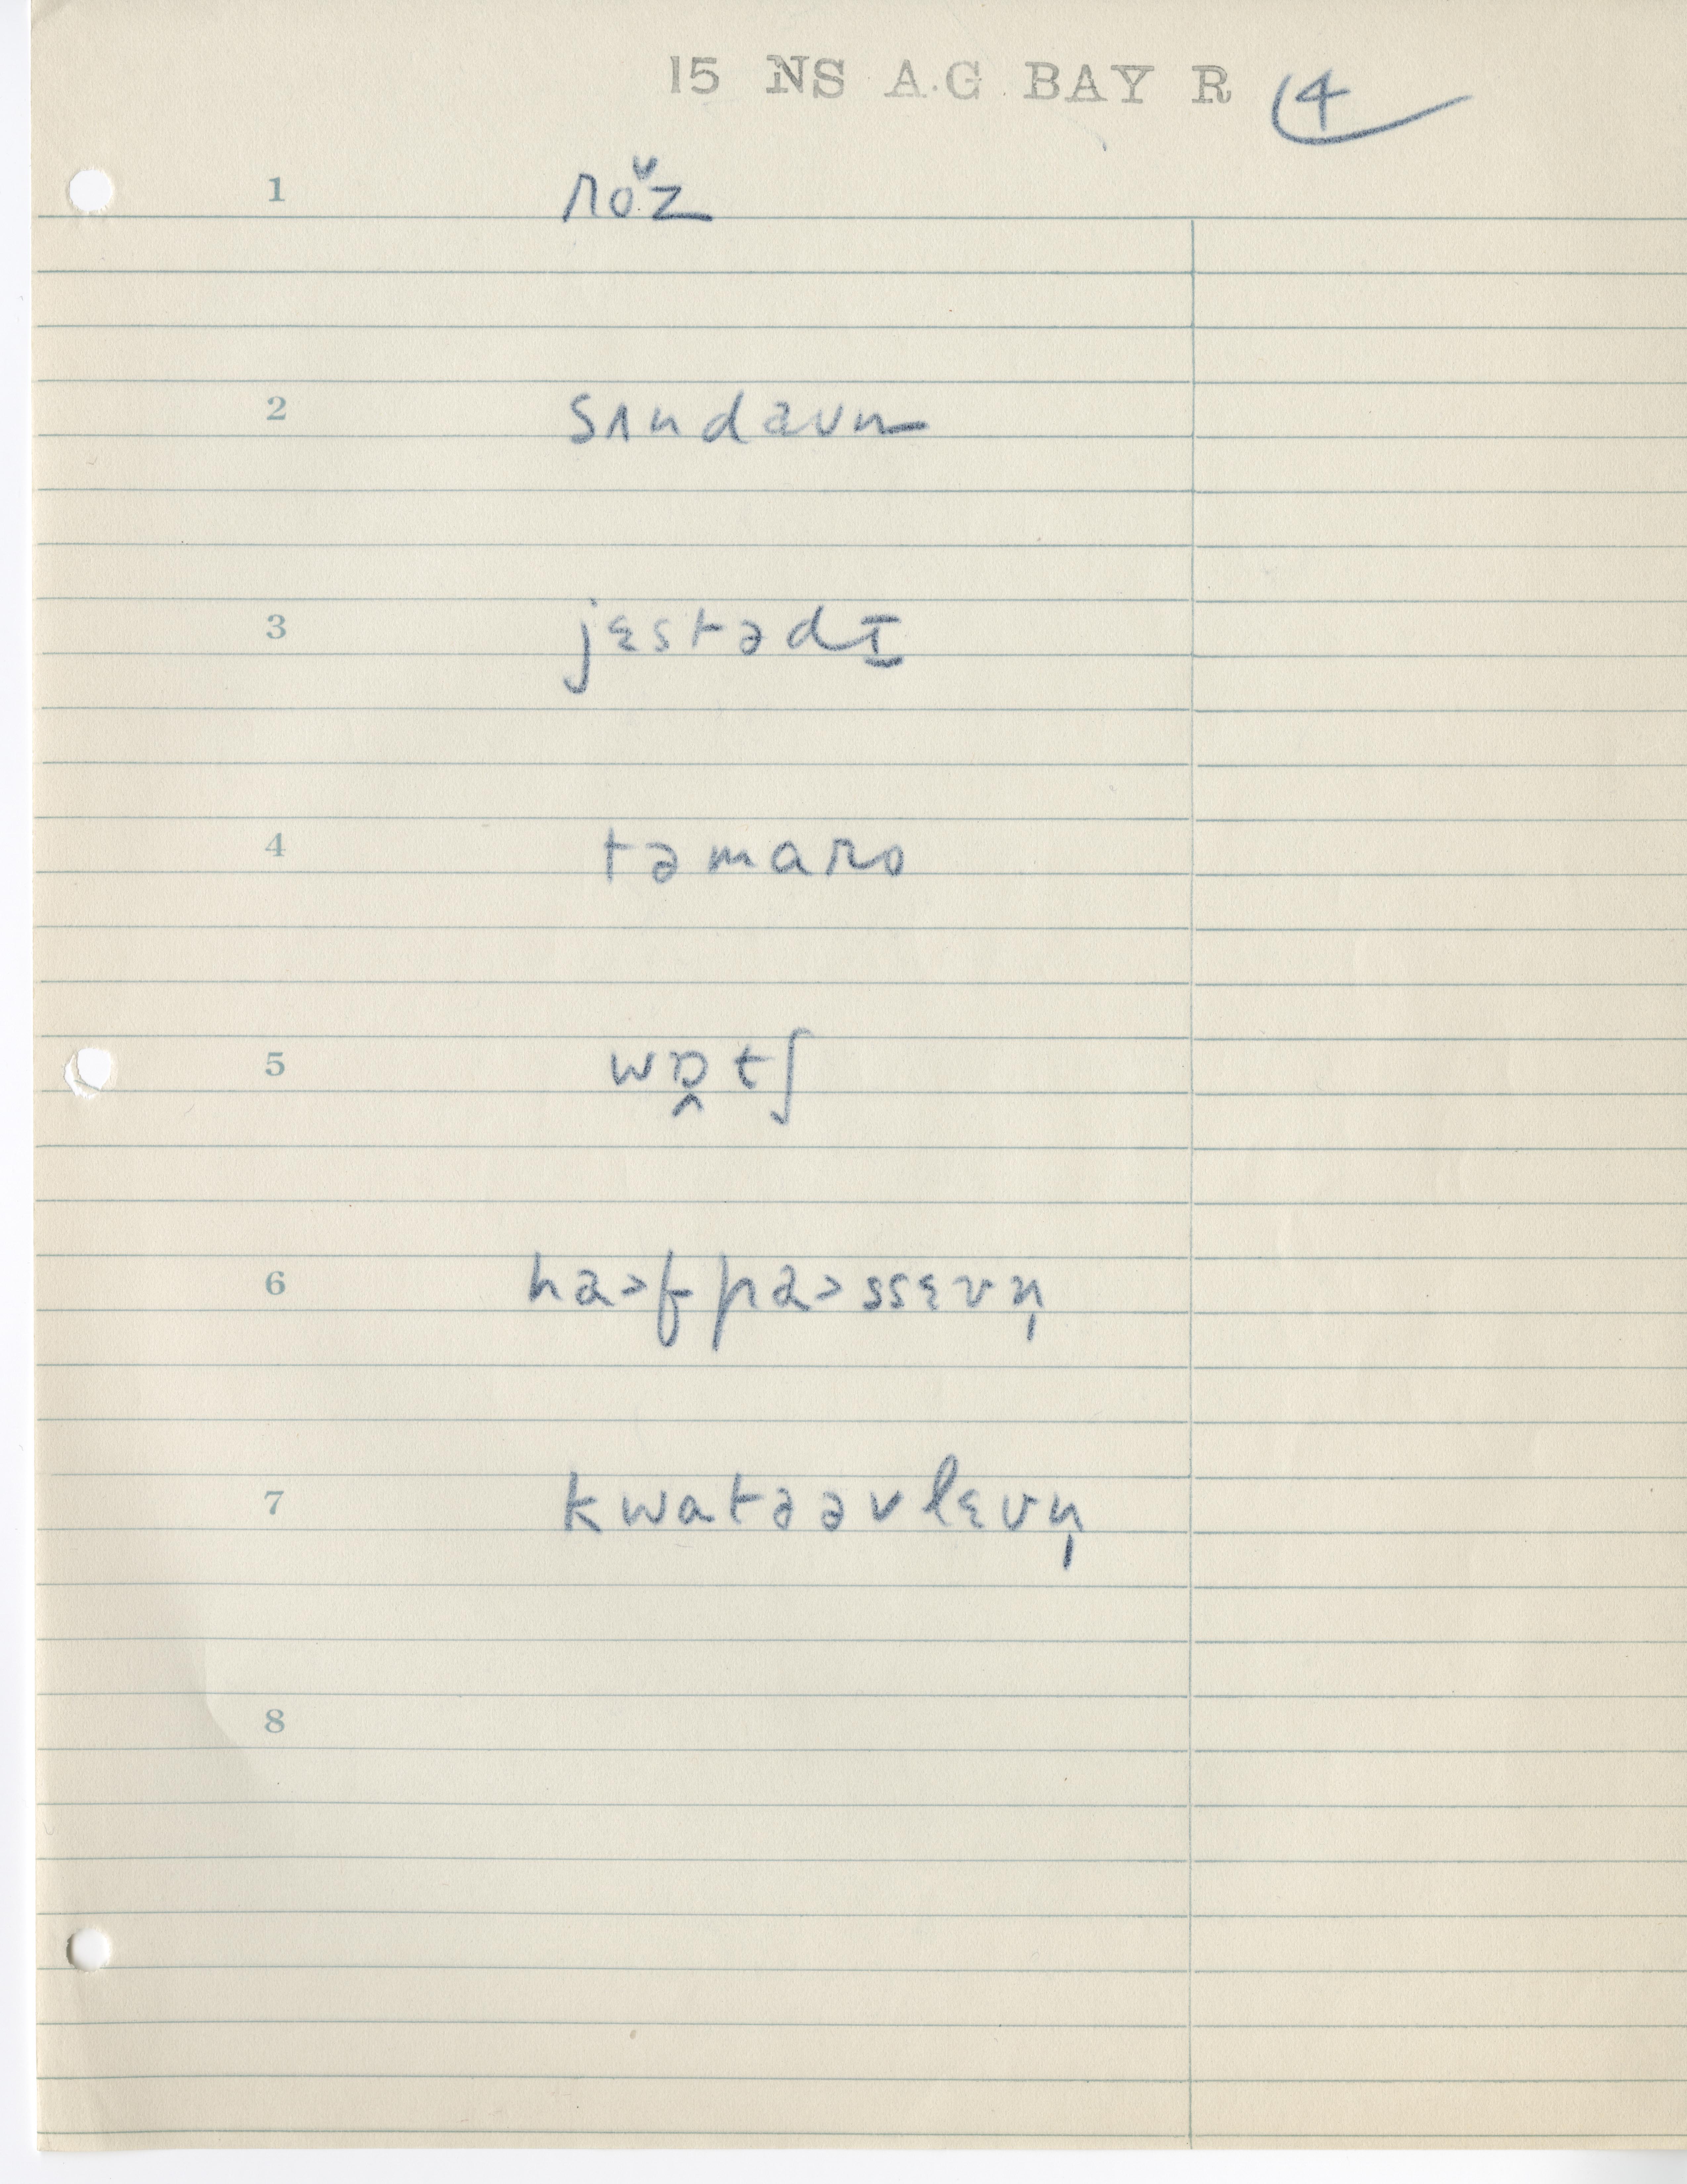 15 NS A.G BAY R 4
1 roᵛz
2 sʌndaʊn
3 jɛstədɪ̠
4 təmaro
5 wɒ̭tʃ
6 ha>f pa>ssɛvn̩
7 kwatəəvlɛvn̩
8